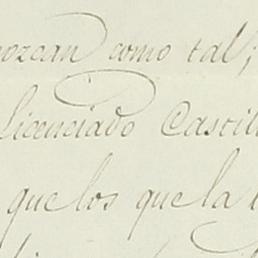 nozcan como tal;
Licenciado Castil
que los que la